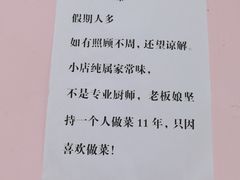 假期人多
如有照顾不周，还望谅解。
小店纯属家常味，
不是专业厨师，老板娘坚
持一个人做菜 11 年，只因
喜欢做菜！